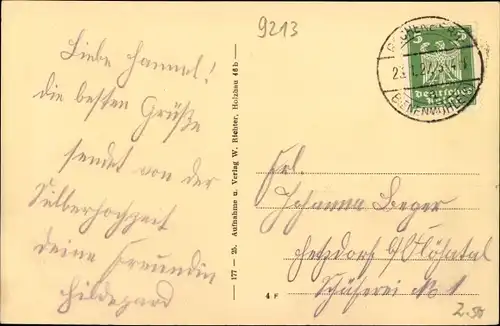 9213
Liebe Hannel!
die besten Grüße
sendet von der
Silberhochzeit
deine Freundin
Hildegard
177 — 25. Aufnahme u. Verlag W. Richter, Holzhau 46b
4 F
5 5
Deutsches
Reich
BIENENMÜHLE
Frl.
Johanna Beger
Hetzdorf Flöhatal
Schäferei No 1
2.50